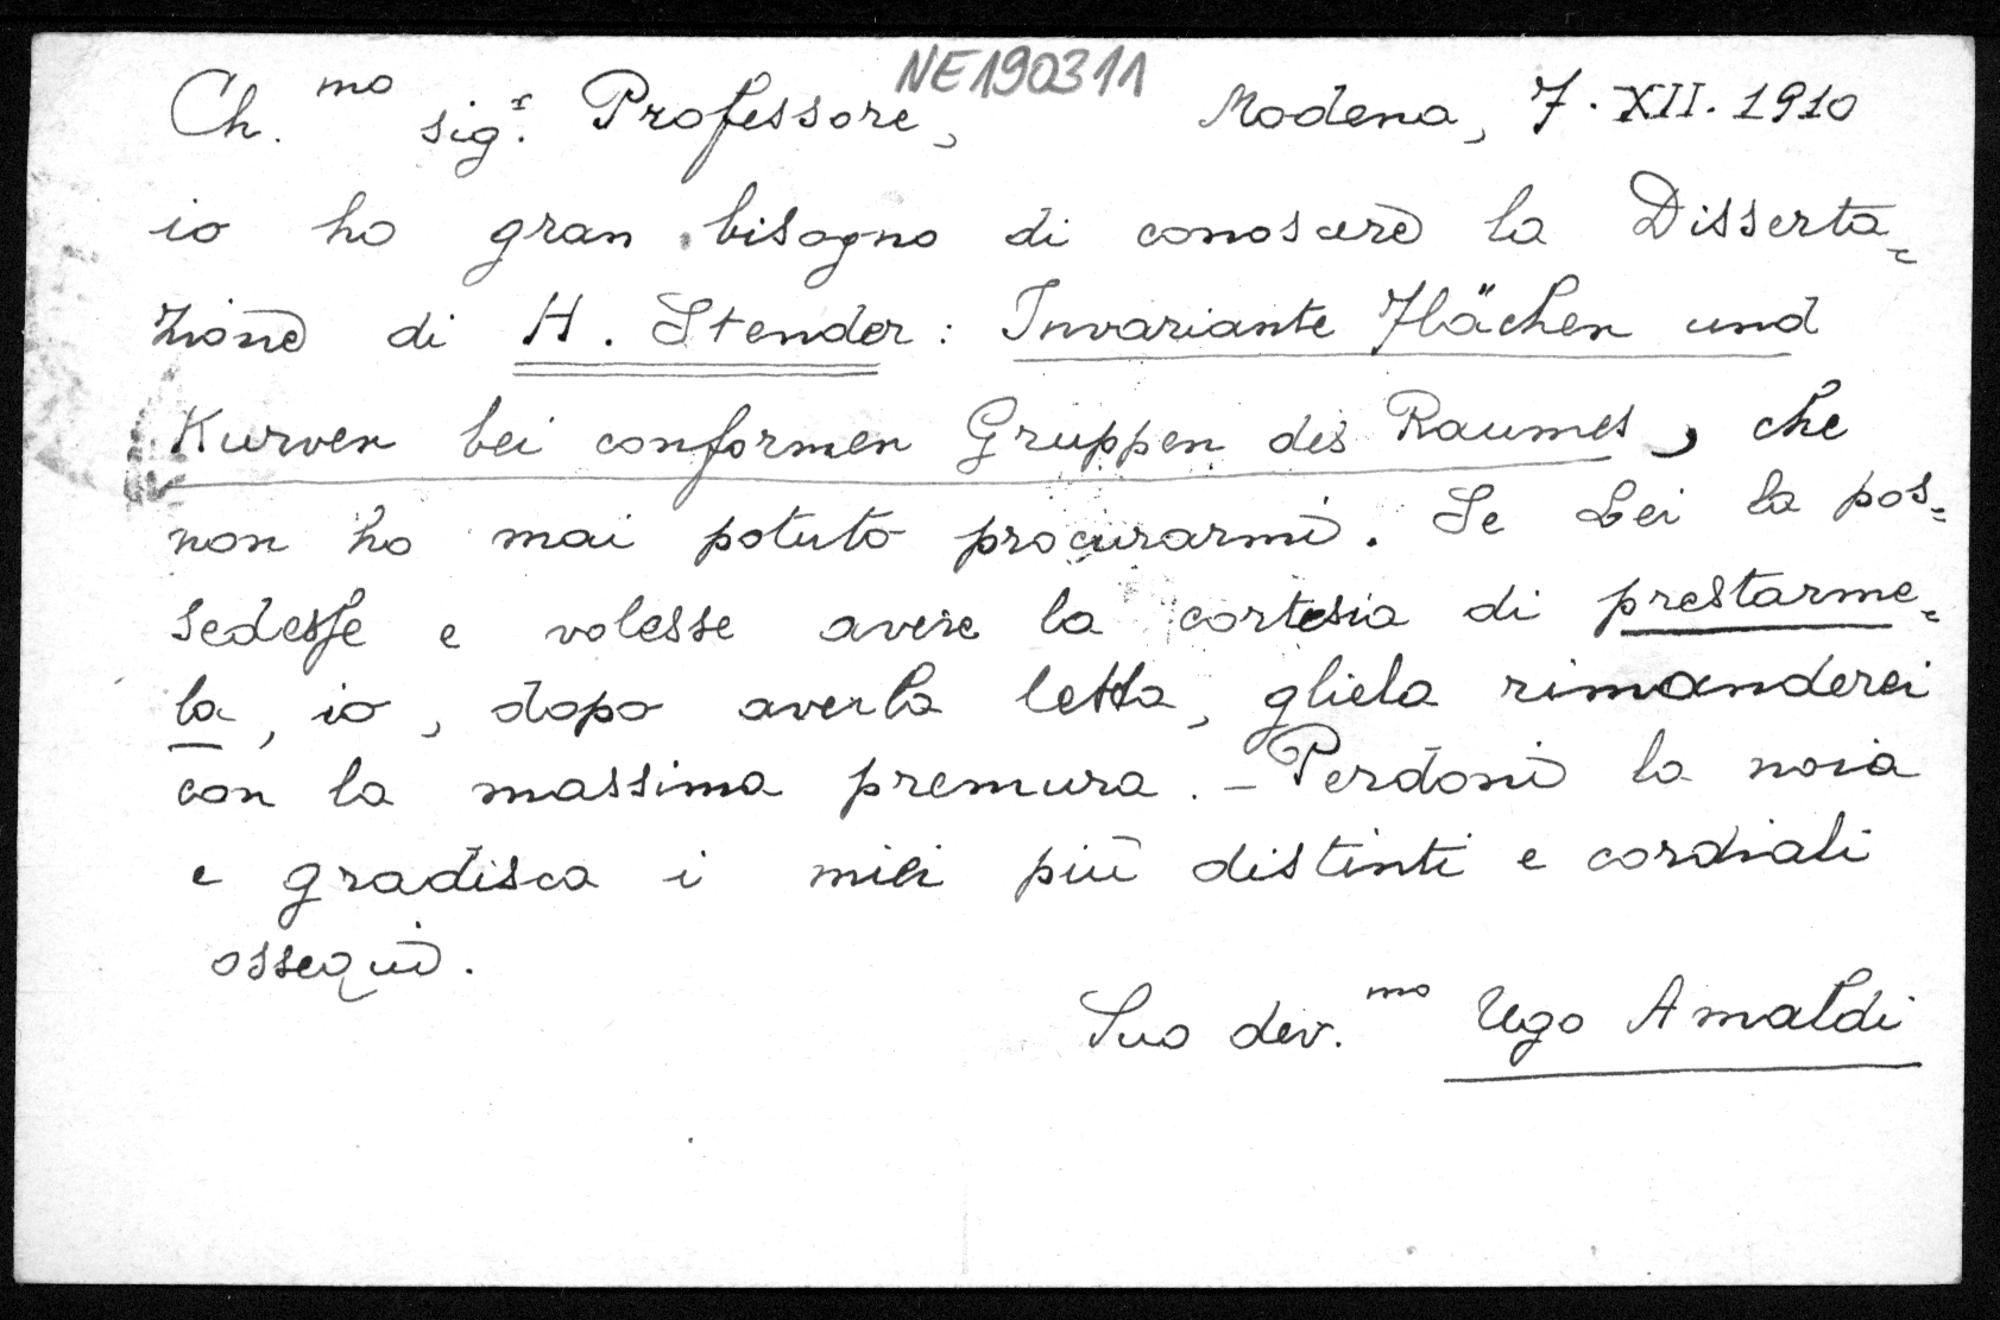 NE190311
Ch.mo sig.r Professore, Modena, 7. XII. 1910
io ho gran bisogno di conoscere la Disserta=
zione di H. Stender: Invariante Flächen und
Kurven bei conformen Gruppen des Raumes, che
non ho mai potuto procurarmi. Se Lei la pos=
sedesse e volesse avere la cortesia di prestarme=
la, io, dopo averla letta, gliela rimanderei
con la massima premura. – Perdoni la noia
e gradisca i miei più distinti e cordiali
ossequi.
Suo dev.mo Ugo Amaldi